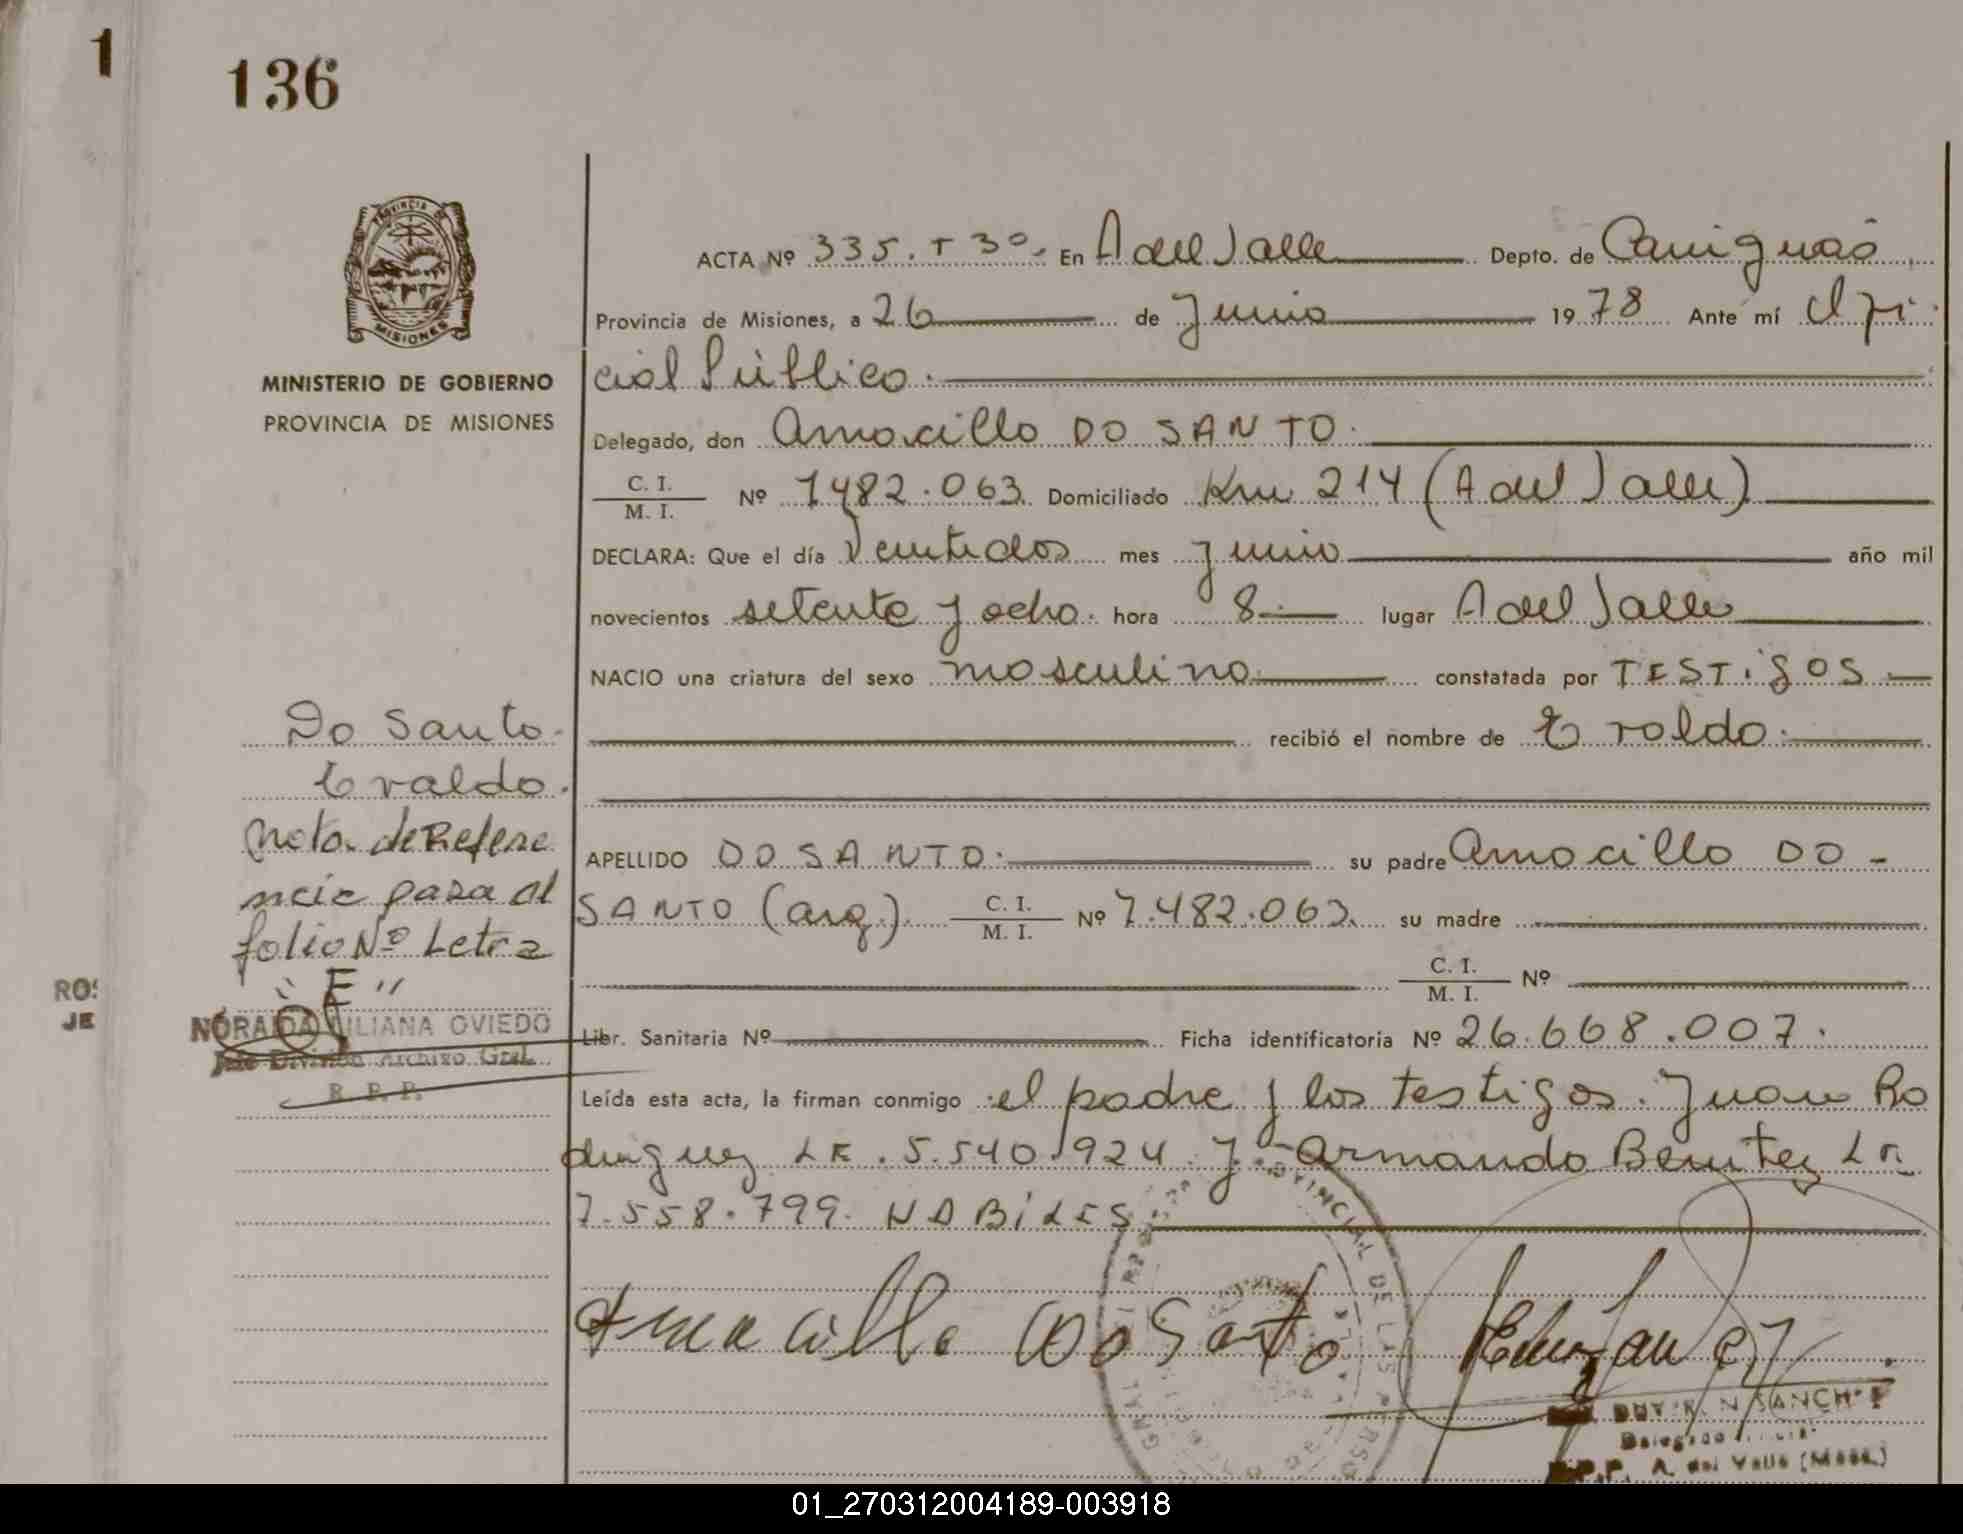 1
136
PROVINCIA DE
MISIONES
MINISTERIO DE GOBIERNO
PROVINCIA DE MISIONES
ACTA Nº 335. T 3º. En A del Valle Depto. de Cainguás
Provincia de Misiones, a 26 de Junio 1978 Ante mí Ofi
cial Público.
Delegado, don Amocillo DO SANTO.
C. I.
M. I.
Nº 7482.063 Domiciliado Km 214 (A del Valle)
DECLARA: Que el día Veintidos mes junio año mil
novecientos setenta y ocho. hora 8 lugar A del Valle
NACIO una criatura del sexo masculino constatada por TESTigOS
recibió el nombre de Eraldo.
APELLIDO DO SANTO. su padre Amocillo DO -
SANTO (arg.) C. I. M. I. Nº 7.482.063. su madre
C. I.
M. I.
Nº
Libr. Sanitaria Nº Ficha identificatoria Nº 26.668.007.
Leída esta acta, la firman conmigo el padre y los testigos. Juan Ro
driguez LE. 5.540.924 y Armando Benitez
7.558.799. HABiLES
Do Santo.
Eraldo.
Nota de Refere
ncia pasa al
folio Nº Letra
"E"
ROS
JE
NORAIDA LILIANA OVIEDO
Jefe División Archivo Gral.
R. P. P.
Amacillo Do Santo
SANCHEZ
Delegado
R.P.P. A. del Valle (Mnes.)
PROVINCIAL DE LAS PERSO
01_270312004189-003918